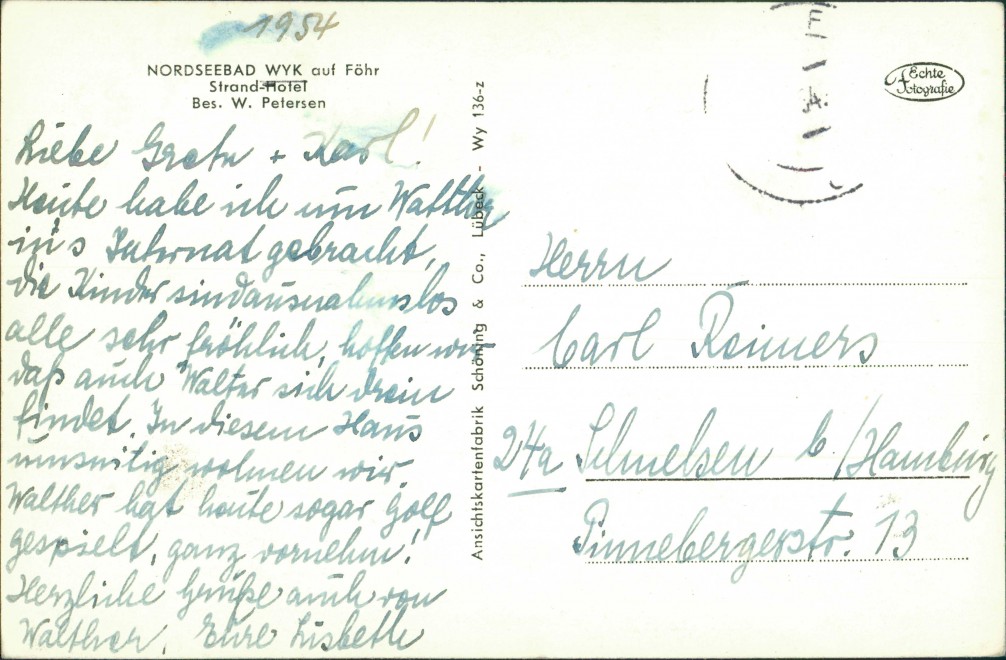 1954
NORDSEEBAD WYK auf Föhr
Strand-Hotel
Bes. W. Petersen
Liebe Gretu + Karl!
Heute habe ich um Walther
in's Internat gebracht,
die Kinder sind ausnahmslos
alle sehr fröhlich, hoffen wir
daß auch Walter sich drein
findet. In diesem Haus
umseitig wohnen wir.
Walther hat heute sogar Golf
gespielt, ganz vornehm!
Herzliche Grüße auch von
Walther, Eure Lisbeth
Ansichtskartenfabrik Schöning & Co., Lübeck - Wy 136-z
Echte
Fotografie
Herrn
Carl Reimers
24a Schnelsen b./Hamburg
Pinnebergerstr. 13